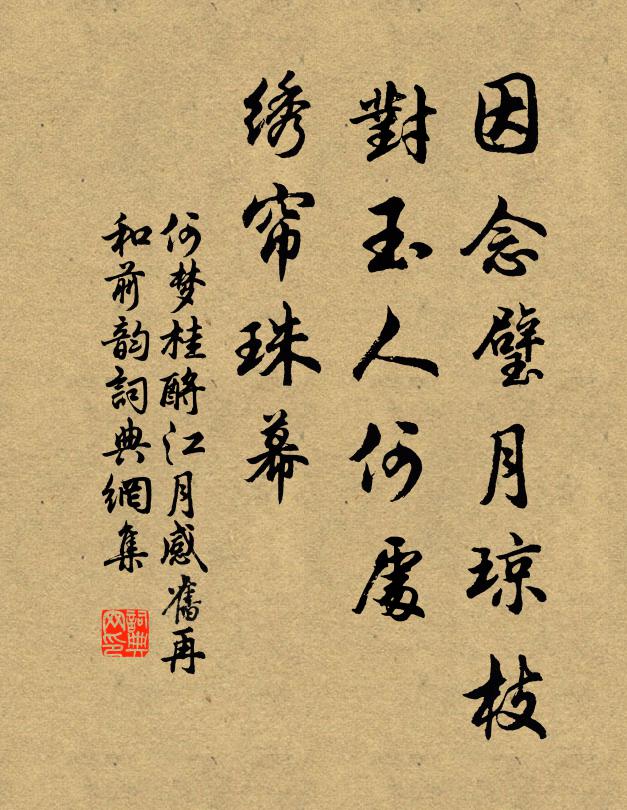 因念璧月琼枝
對玉人何處
绣帘珠幕
何梦桂酹江月感舊再
和前韵詞典網集
詞典网印